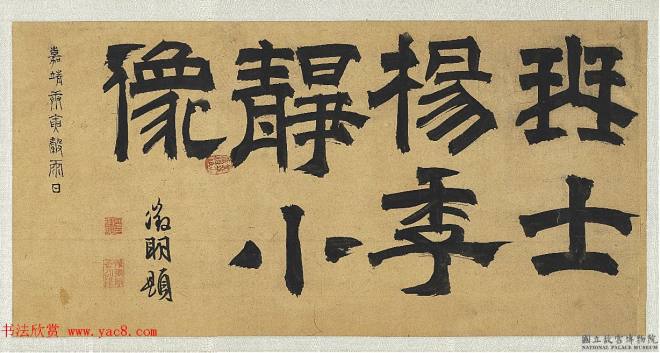 班士
楊季
靜小
像
徵明題
嘉靖庚寅穀雨日
书法欣赏 www.yac8.com
國立故宮博物院
NATIONAL PALACE MUSEUM